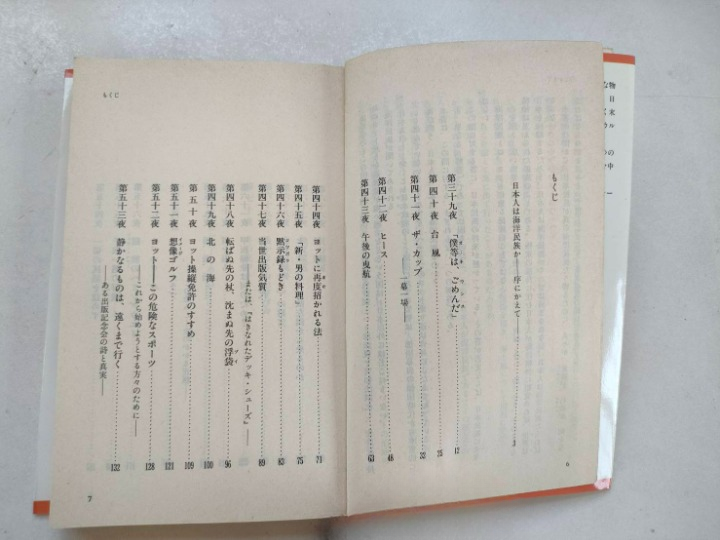 もくじ
日本人は海洋民族か——序にかえて—— 3
第三十九夜 「僕等は、ごめんだ」 12
第四十夜 台風 25
第四十一夜 ザ・カップ 32
——一幕一場——
第四十二夜 ヒース 48
第四十三夜 午後の曳航 63
6
もくじ
第四十四夜 ヨットに再度招かれる法 71
第四十五夜 「新・男の料理」 75
第四十六夜 黙示録もどき 83
第四十七夜 当世出版気質 89
——または、「はきなれたデッキ・シューズ」——
第四十八夜 転ばぬ先の杖、沈まぬ先の浮袋 96
第四十九夜 北の海 100
第五十夜 ヨット操縦免許のすすめ 109
第五十一夜 想像ゴルフ 121
第五十二夜 ヨット——この危険なスポーツ 128
——これから始めようとする方々のために——
第五十三夜 静かなるものは、遠くまで行く 132
——ある出版記念会の詩と真実——
7